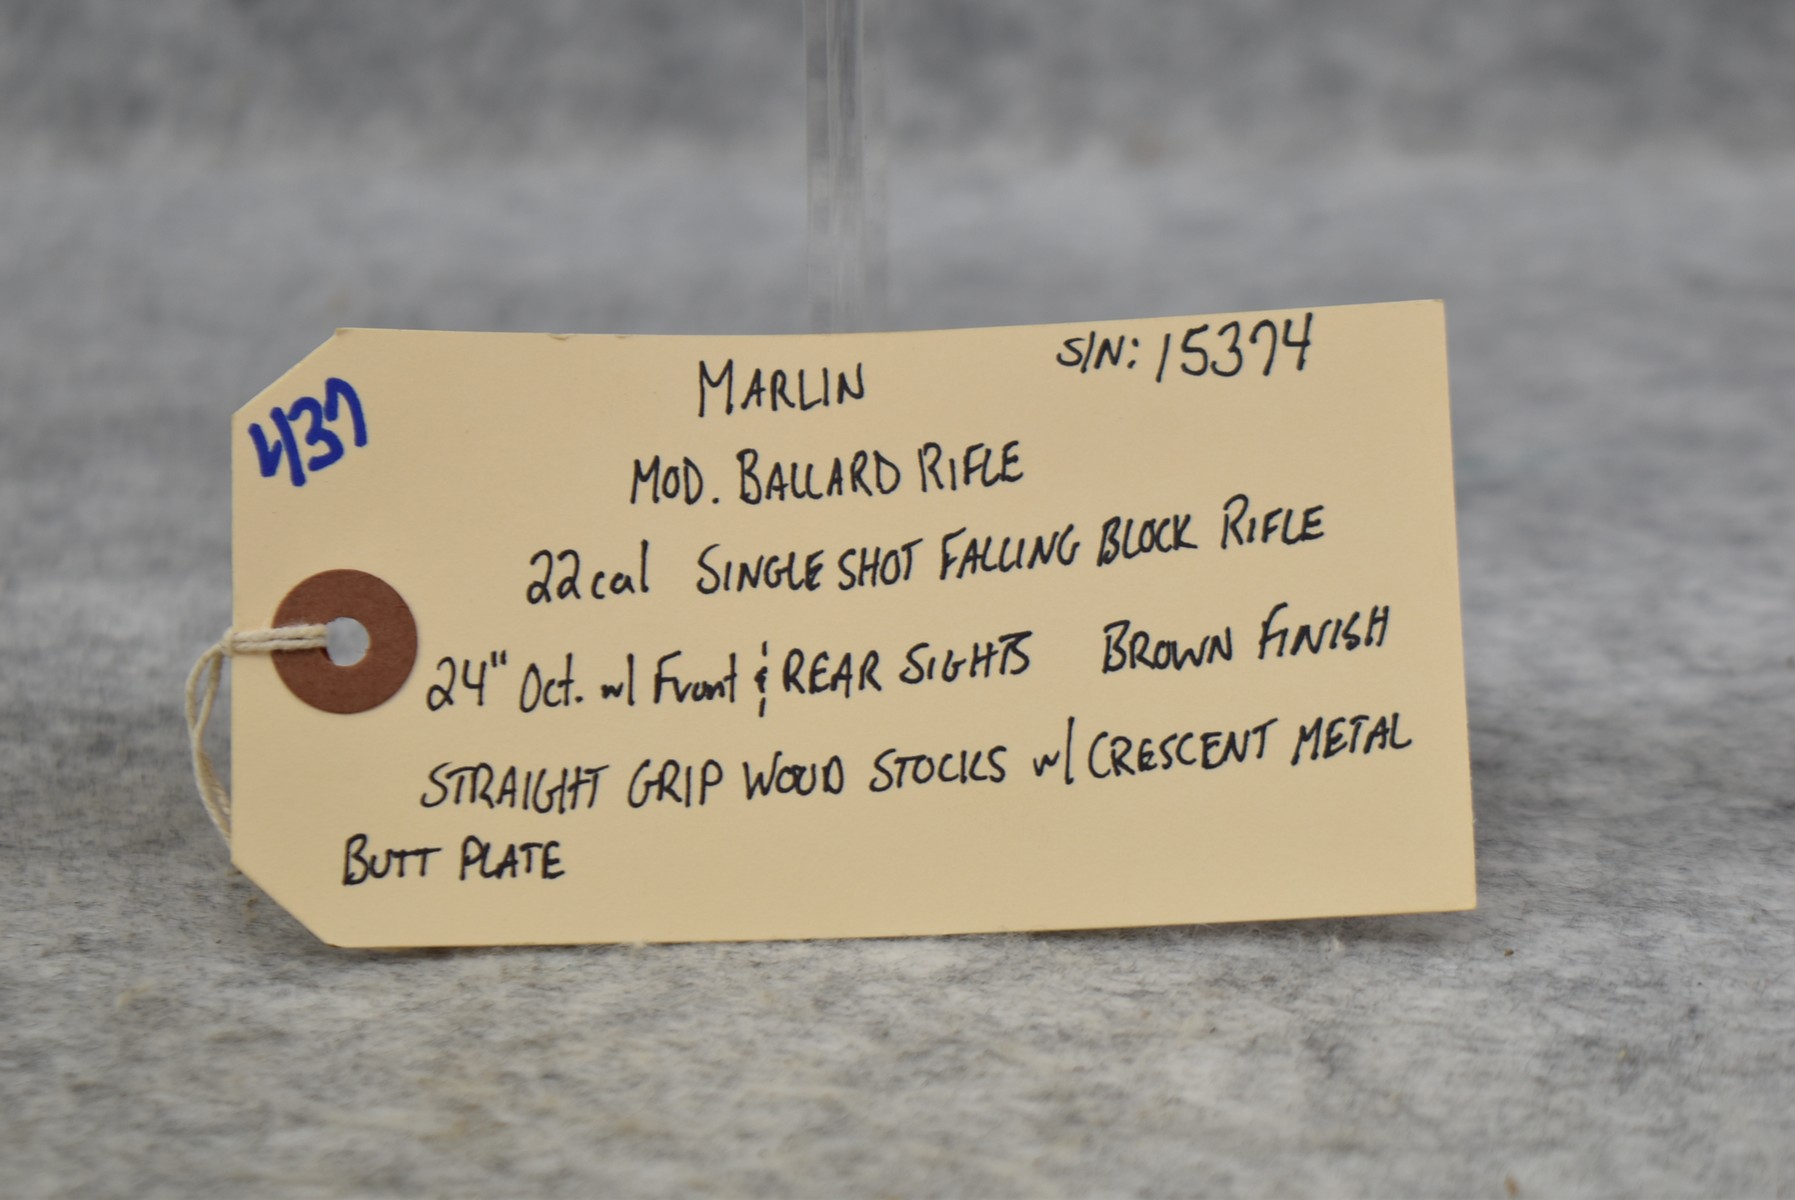 437
MARLIN S/N: 15374
MOD. BALLARD RIFLE
22cal SINGLE SHOT FALLING BLOCK RIFLE
24" Oct. w/ Front & REAR SIGHTS BROWN FINISH
STRAIGHT GRIP WOOD STOCKS w/ CRESCENT METAL
BUTT PLATE